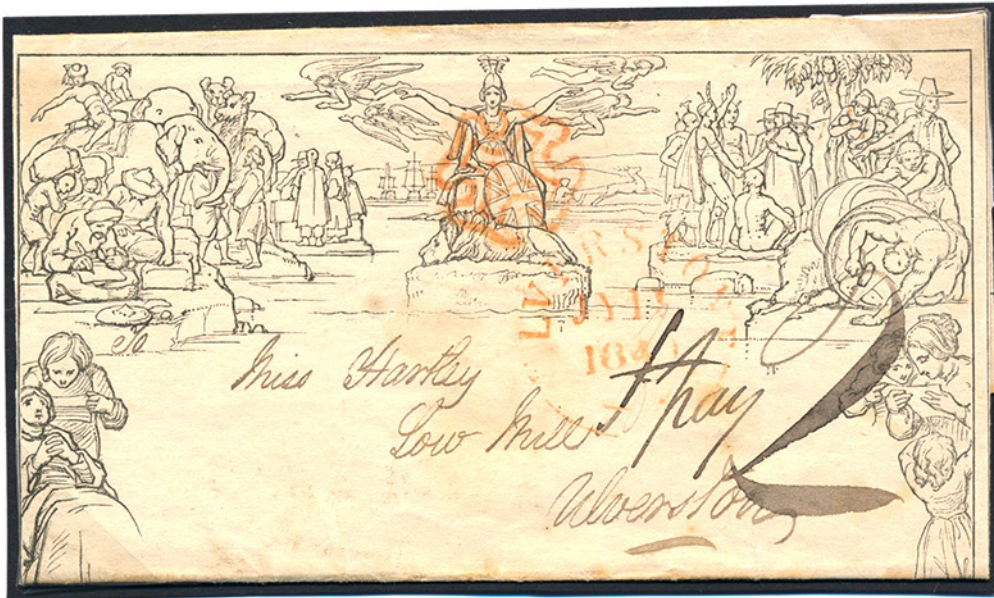 ULVERSTON
JY 1
184
Miss Hartley
Low Mill
Ulverston
pay
2